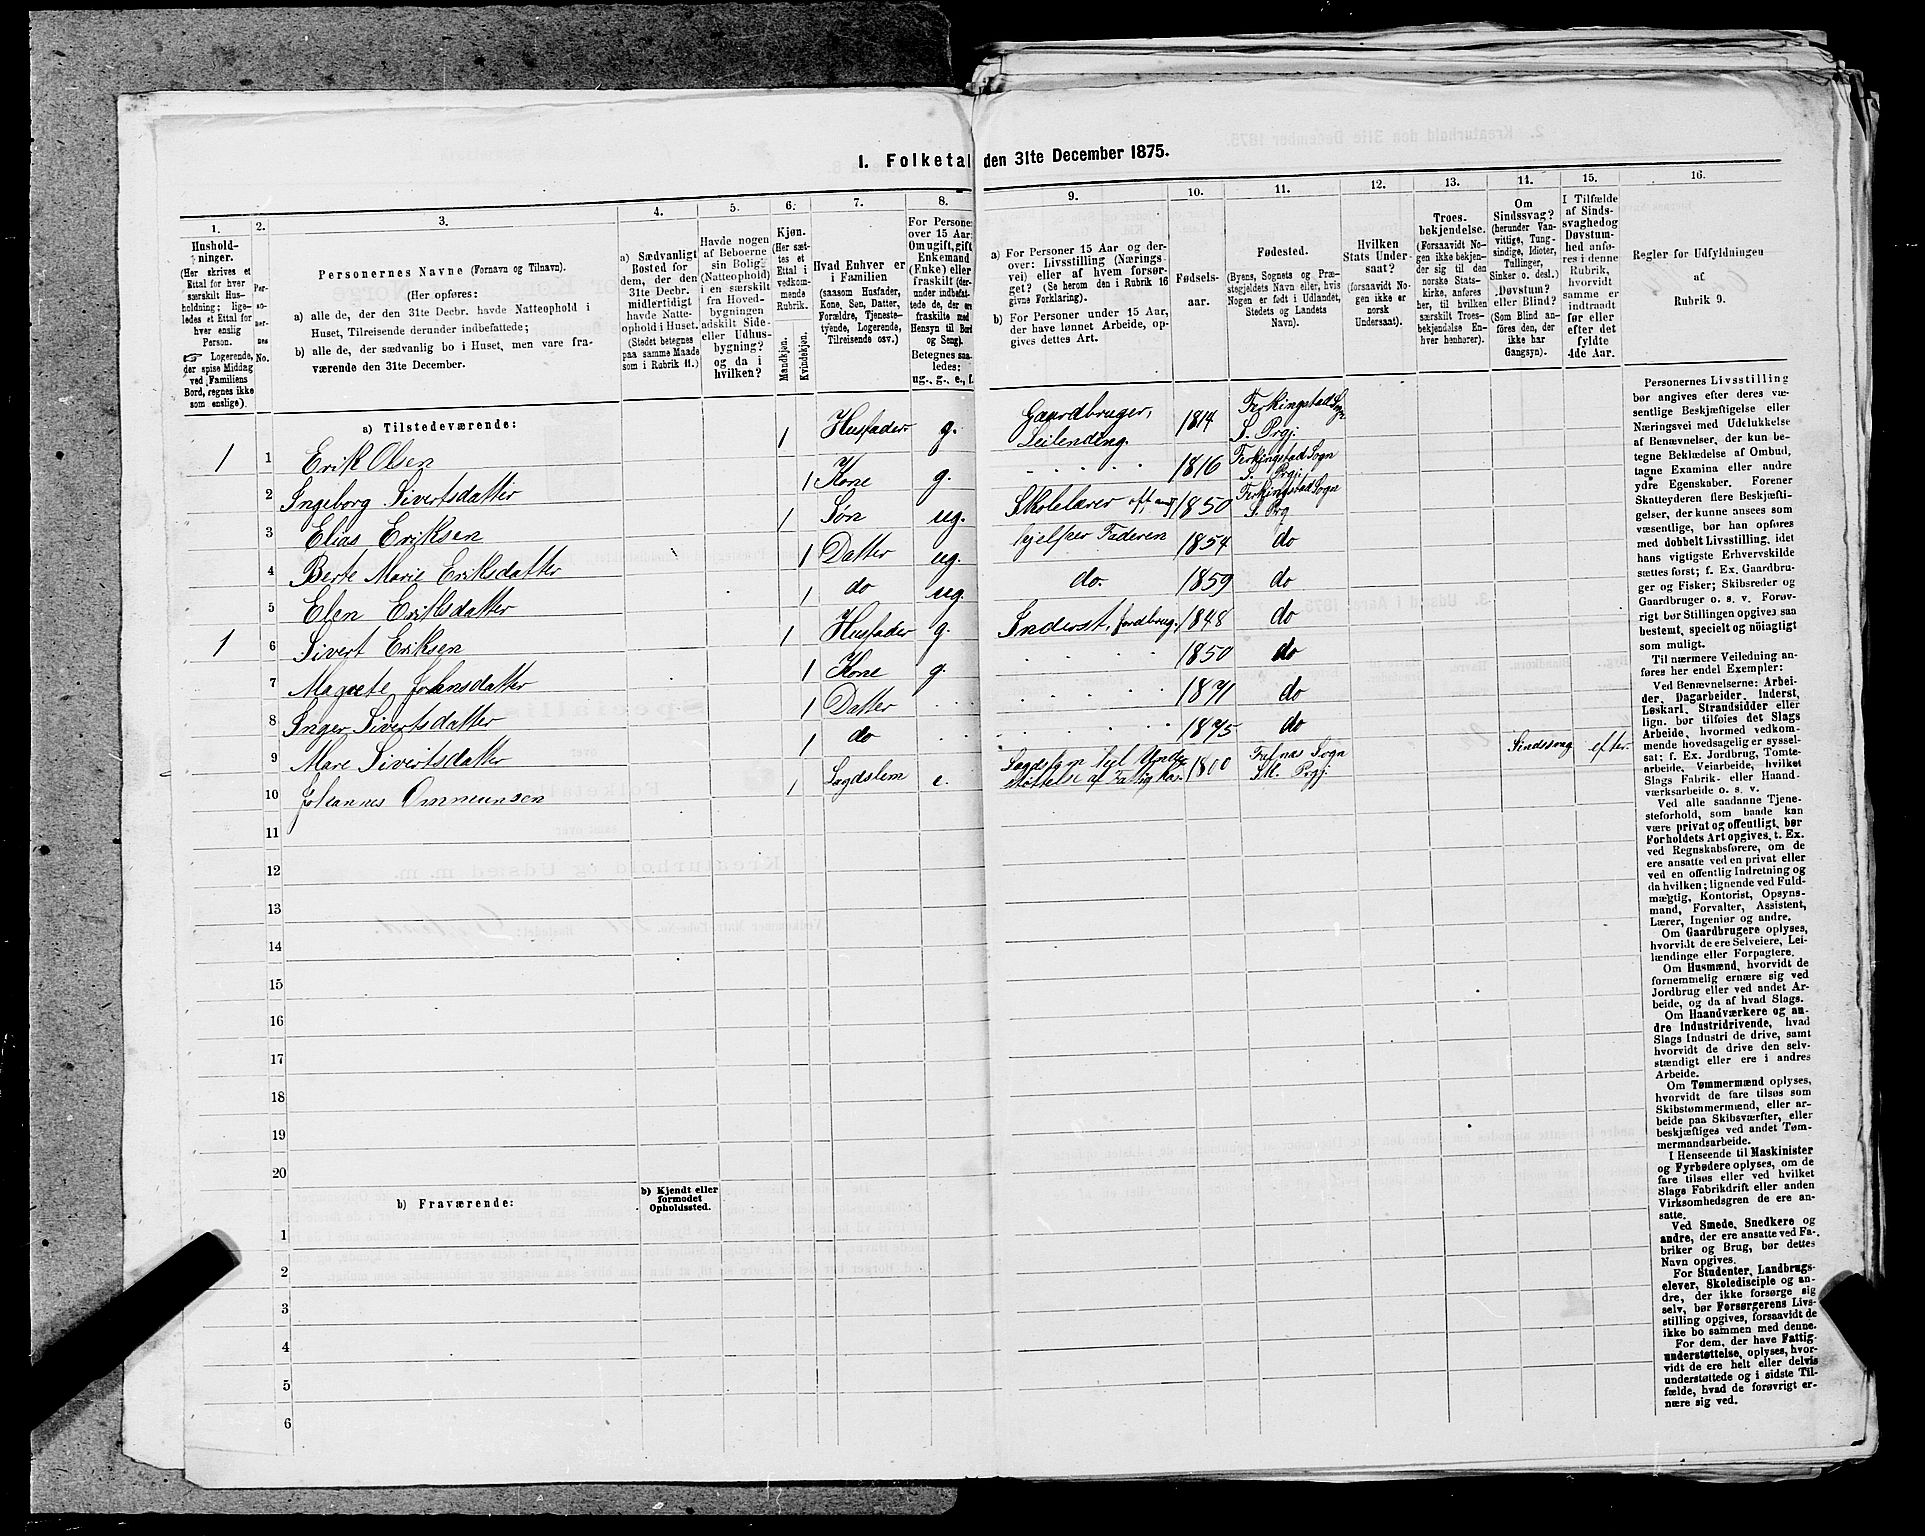 1. Folketal den 31te December 1875.
1.
Hushold-
ninger.
(Her skrives et
Ettal for hver
særskilt Hus-
holdning; lige-
ledes et Ettal for
hver enslig
Person.
☞ Logerende,
der spise Middag
ved Familiens
Bord, regnes ikke
som enslige).
2.
No.
3.
Personernes Navne (Fornavn og Tilnavn).
(Her opføres:
a) alle de, der den 31te Decbr. havde Natteophold i
Huset, Tilreisende derunder indbefattede;
b) alle de, der sædvanlig bo i Huset, men vare fra-
værende den 31te December.
4.
a) Sædvanligt
Bosted for
dem, der den
31te Decbr.
midlertidigt
havde Natte-
ophold i Huset.
(Stedet betegnes
paa samme Maade
som i Rubrik 11.)
5.
Havde nogen
af Beboerne
sin Bolig
(Natteophold)
i en særskilt
fra Hoved-
bygningen
adskilt Side-
eller Udhus-
bygning?
og da i
hvilken?
6.
Kjøn.
(Her sæt-
tes et
Ettal i
vedkom-
mende
Rubrik.
Mandkjøn.
Kvindekjøn.
7.
Hvad Enhver er
i Familien
(saasom Husfader,
Kone, Søn, Datter,
Forældre, Tjeneste-
tyende, Logerende,
Tilreisende osv.)
8.
For Personer
over 15 Aar:
Om ugift, gift,
Enkemand
(Enke) eller
fraskilt (der-
under indbefat-
tede de, der ere
fraskilte med
Hensyn til Bord
og Seng).
Betegnes saa-
ledes:
ug., g., e., f.
9.
a) For Personer 15 Aar og der-
over: Livsstilling (Nærings-
vei) eller af hvem forsør-
get? (Se herom den i Rubrik 16
givne Forklaring).
b) For Personer under 15 Aar,
der have lønnet Arbeide, op-
gives dettes Art.
10.
Fødsels-
aar.
11.
Fødested.
(Byens, Sognets og Præ-
stegjeldets Navn eller, hvis
Nogen er født i Udlandet,
Stedets og Landets
Navn).
12.
Hvilken
Stats Under-
saat?
(forsaavidt No-
gen ikke er
norsk
Undersaat).
13.
Troes-
bekjendelse.
(Forsaavidt No-
gen ikke bekjen-
der sig til den
norske Stats-
kirke, anføres
her, til hvilken
særskilt Troes-
bekjendelse En-
hver henhører).
14.
Om
Sindssvag?
(herunder Van-
vittige, Tung-
sindige, Idioter,
Tullinger,
Sinker o. desl.)
Døvstum?
eller Blind?
(Som Blind an-
føres den, der
ikke har
Gangsyn).
15.
I Tilfælde
af Sinds-
svaghed og
Døvstum-
hed anfø-
res i denne
Rubrik,
hvorvidt
samme er
indtraadt
før eller
efter det
fyldte
4de Aar.
16.
Regler for Udfyldningen
af
Rubrik 9.
a) Tilstedeværende:
1 1 Erik Olsen 1 Husfader g. Gaardbruger, Leilending. 1814 Ferkingstad Sogn S. Prgj.
2 Ingeborg Sivertsdatter 1 Kone g. 1816 Ferkingstad Sogn S. Prgj.
3 Elias Eriksen 1 Søn ug. Skolelærer 1850 Ferkingstad Sogn S. Prg
4 Berte Marie Eriksdatter 1 Datter ug. hjelper Faderen 1854 do
5 Elen Eriksdatter 1 do ug. do. 1859 do
1 6 Sivert Eriksen 1 Husfader g. Inderst, jordbrug. 1848 do
7 Magrete Johnsdatter 1 Kone g. 1850 do
8 Inger Sivertsdatter 1 Datter 1871 do
9 Mare Sivertsdatter 1 do 1875 do
10 Johannes Ommunsen 1 Lægdslem e. Lægdslem Understøttelse af Fattigkas. 1800 Sogn Sk. Prgj. Sindssvag efter.
11
12
13
14
15
16
17
18
19
20
b) Fraværende:
b) Kjendt eller
formodet
Opholdssted.
1
2
3
4
5
6
Personernes Livsstilling
bør angives efter deres væ-
sentlige Beskjæftigelse eller
Næringsvei med Udelukkelse
af Benævnelser, der kun be-
tegne Beklædelse af Ombud,
tagne Examina eller andre
ydre Egenskaber. Forener
Skatteyderen flere Beskjæfti-
gelser, der kunne ansees som
væsentlige, bør han opføres
med dobbelt Livsstilling, idet
hans vigtigste Erhvervskilde
sættes først; f. Ex. Gaardbru-
ger og Fisker; Skibsreder og
Gaardbruger o. s. v. Forøv-
rigt bør Stillingen opgives saa
bestemt, specielt og nöiagtigt
som muligt.
Til nærmere Veiledning an-
føres her endel Exempler:
Ved Benævnelserne: Arbei-
der, Dagarbeider, Inderst,
Løskarl, Strandsidder eller
lign. bør tilføies det Slags
Arbeide, hvormed vedkom-
mende hovedsagelig er syssel-
sat; f. Ex. Jordbrug, Tomte-
arbeide, Veiarbeide, hvilket
Slags Fabrik- eller Haand-
værksarbeide o. s. v.
Ved alle saadanne Tjene-
steforhold, som baade kan
være privat og offentligt, bør
Forholdets Art opgives, t. Ex.
ved Regnskabsførere, om de
ere ansatte ved en privat eller
ved en offentlig Indretning og
da hvilken; lignende ved Fuld-
mægtig, Kontorist, Opsyns-
mand, Forvalter, Assistent,
Lærer, Ingeniør og andre.
Om Gaardbrugere oplyses,
hvorvidt de ere Selveiere, Lei-
lændinge eller Forpagtere.
Om Husmænd, hvorvidt de
fornemmelig ernære sig ved
Jordbrug eller ved andet Ar-
beide, og da af hvad Slags.
Om Haandværkere og an-
dre Industridrivende, hvad
Slags Industri de drive, samt
hvorvidt de drive den selv-
stændigt eller ere i andres
Arbeide.
Om Tømmermænd oplyses,
hvorvidt de fare tilsøs som
Skibstømmermænd, eller ar-
beide paa Skibsværfter, eller
beskjæftiges ved andet Tøm-
mermandsarbeide.
I Henseende til Maskinister
og Fyrbødere oplyses, om de
fare tilsøs eller ved hvilket
Slags Fabrikdrift eller anden
Virksomhedsgren de ere an-
satte.
Ved Smede, Snedkere og
andre, der ere ansatte ved Fa-
briker og Brug, bør dettes
Navn opgives.
For Studenter, Landbrugs-
elever, Skoledisciple og an-
dre, der ikke forsørge sig
selv, bør Forsørgerens Livs-
stilling opgives, forsaavidt de
ikke bo sammen med denne.
For dem, der have Fattig-
understøttelse, oplyses, hvor-
vidt de ere helt eller delvis
understøttede og i sidste Til-
fælde, hvad de forøvrigt er-
nære sig ved.